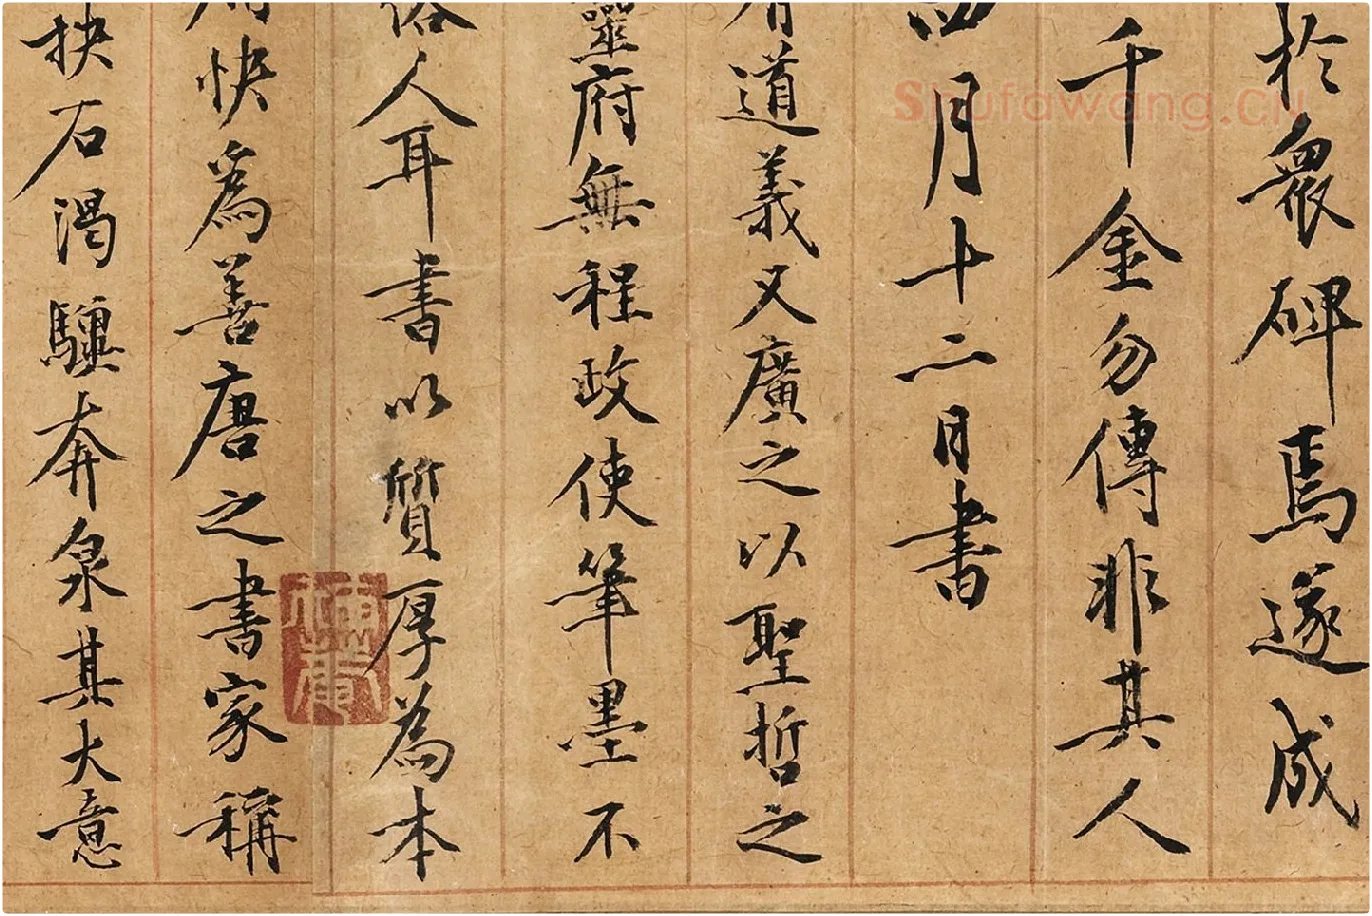 於衆碑焉遂成
千金勿傳非其人
四月十二日書
有道義又廣之以聖哲之
靈府無程政使筆墨不
俗人耳書以質厚為本
快為善唐之書家稱
抉石渴驥奔泉其大意
Shufawang.CN